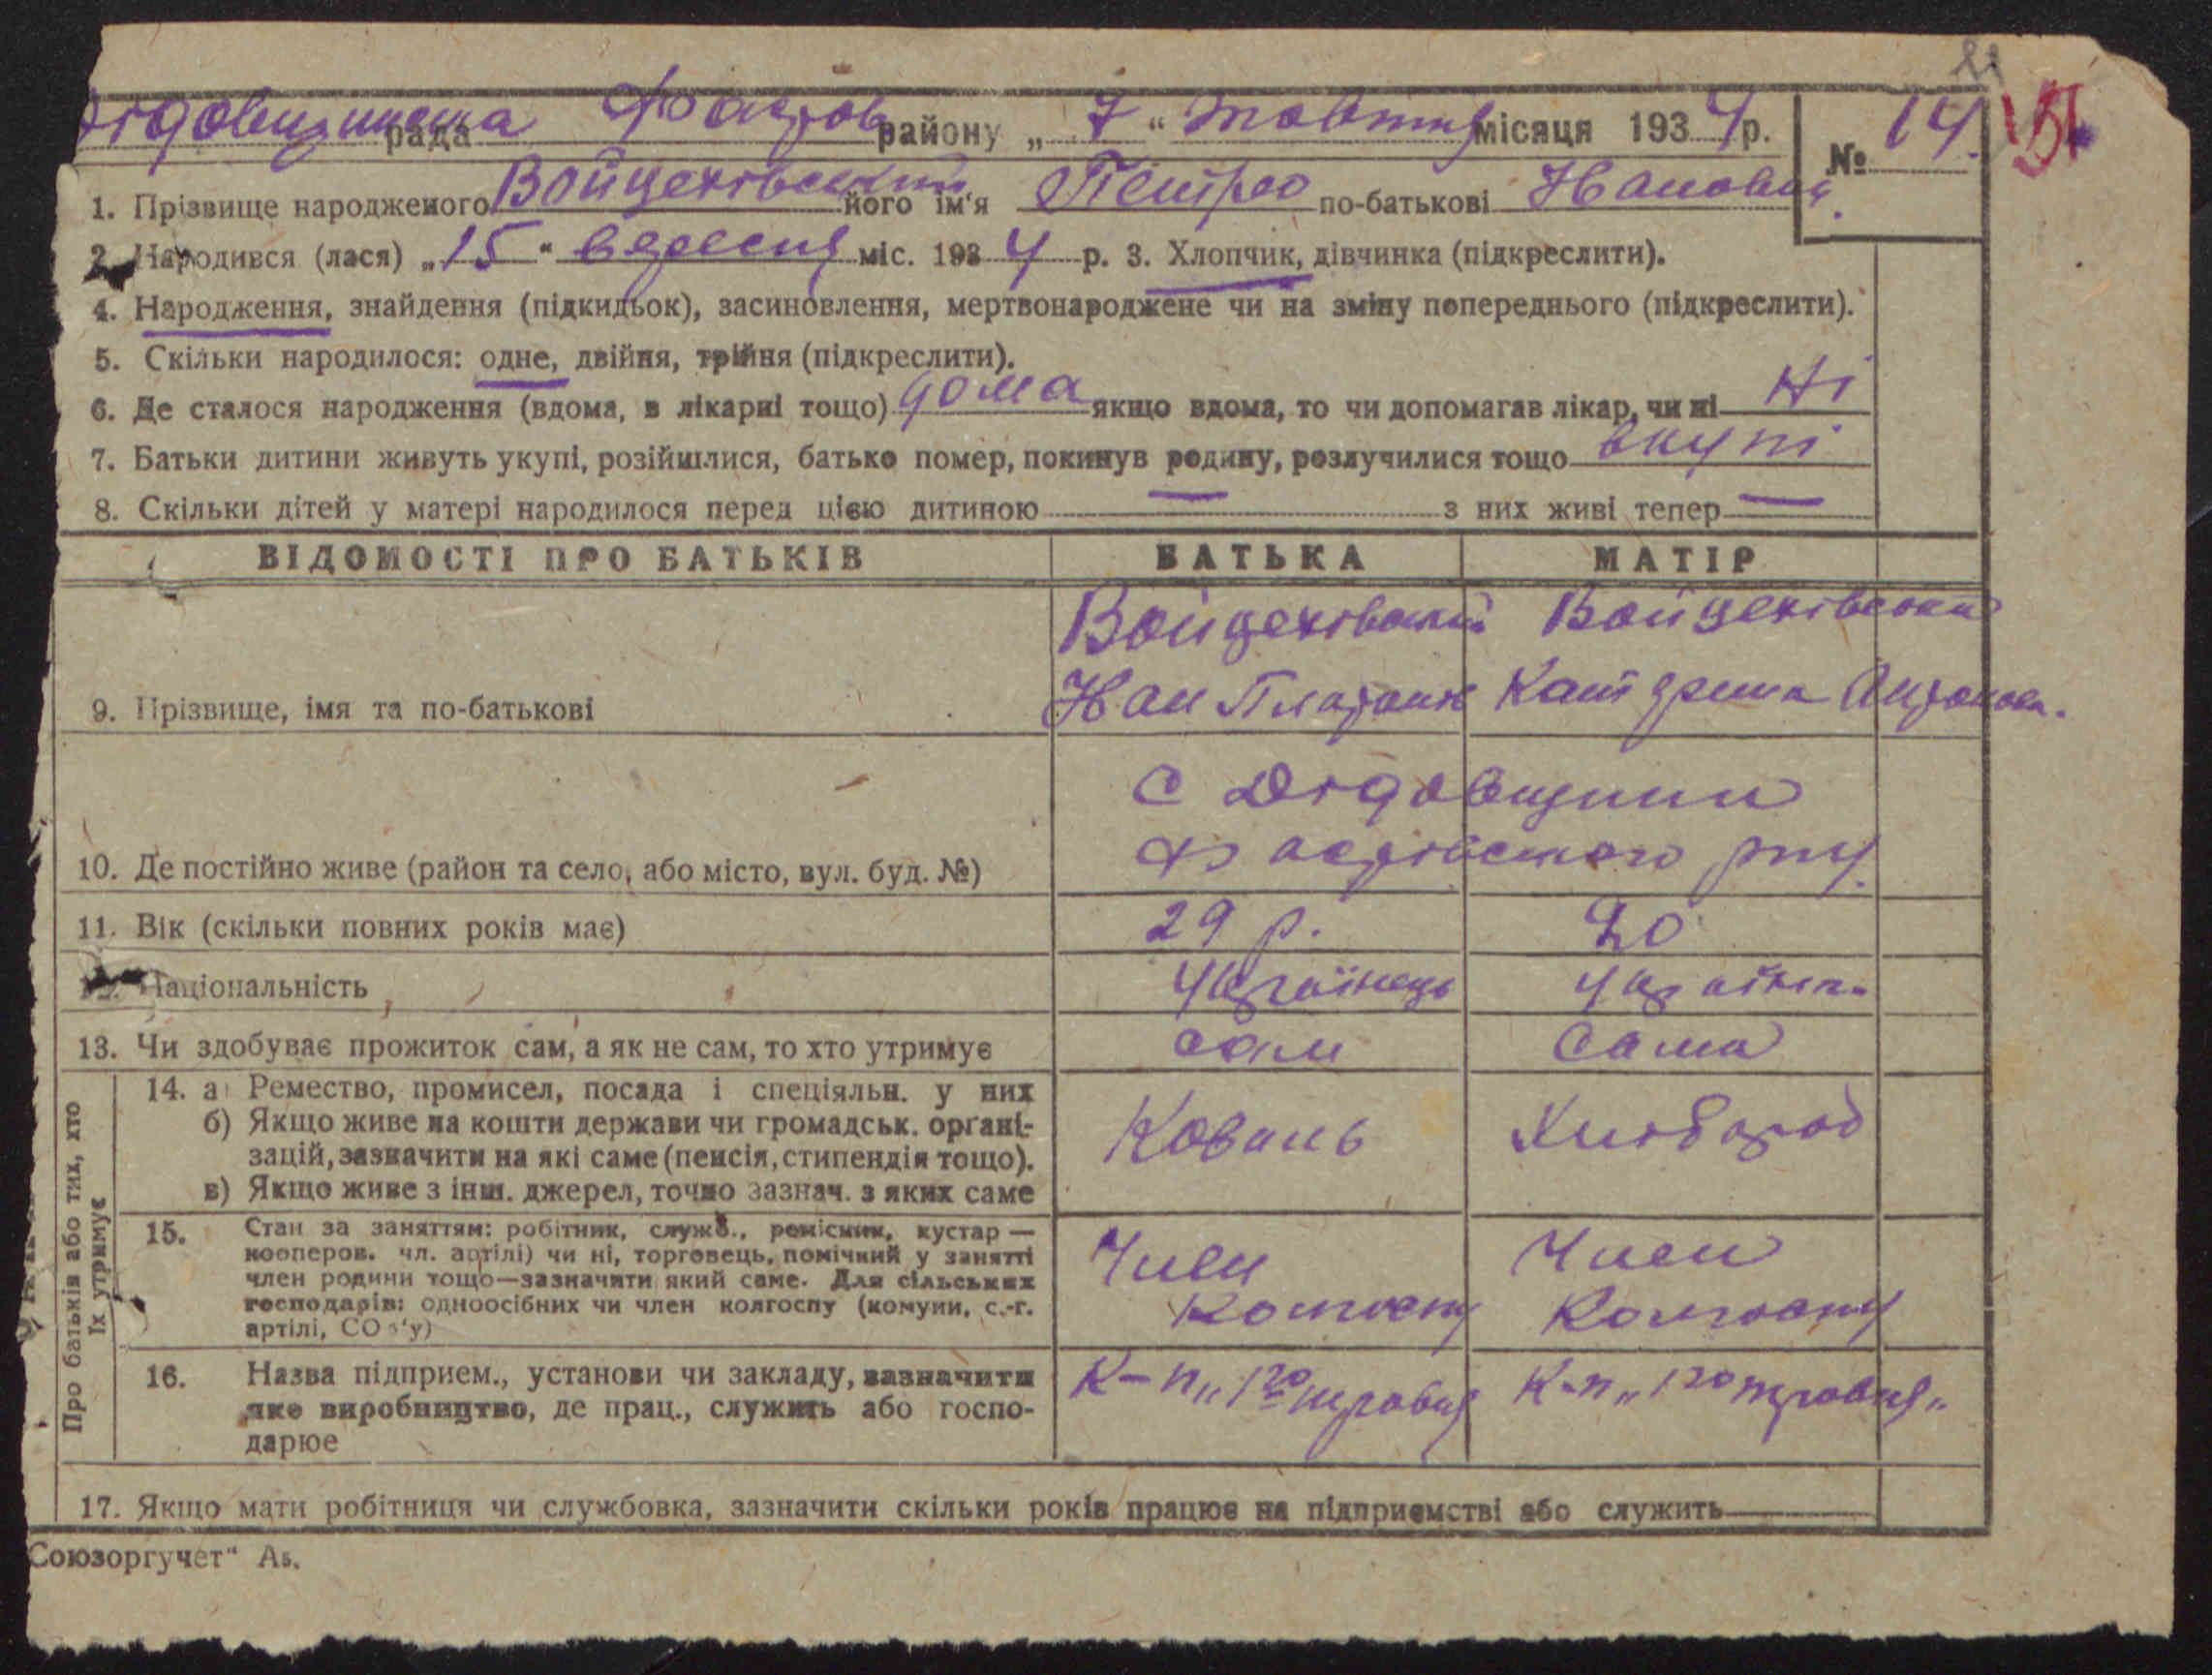 Дідовщинська рада Фастов району „ 7 “ жовтня місяця 1934 р. № 14.
1. Прізвище народженого Войцехівський його ім'я Петро по-батькові Іванович.
2. Народився (лася) „ 15 “ вересня міс. 1934 р. 3. Хлопчик, дівчинка (підкреслити).
4. Народження, знайдення (підкидьок), засиновлення, мертвонароджене чи на зміну попереднього (підкреслити).
5. Скільки народилося: одне, двійня, трійня (підкреслити).
6. Де сталося народження (вдома, в лікарні тощо) дома якщо вдома, то чи допомагав лікар, чи ні Ні
7. Батьки дитини живуть укупі, розійшлися, батько помер, покинув родину, розлучилися тощо вкупі
8. Скільки дітей у матері народилося перед цією дитиною — з них живі тепер —
ВІДОМОСТІ ПРО БАТЬКІВ БАТЬКА МАТІР
Войцехівський Войцехівська
9. Прізвище, імя та по-батькові Іван Платонов Катерина Антонов.
с Дідовщини
10. Де постійно живе (район та село, або місто, вул. буд. №) Фастівського р-ну
11. Вік (скільки повних років має) 29 р. 20
12. Національність Українець Україн.
13. Чи здобуває прожиток сам, а як не сам, то хто утримує сам сама
Про батьків або тих, хто
їх утримує
14. а) Ремество, промисел, посада і спеціяльн. у них
б) Якщо живе на кошти держави чи громадськ. орґані-
зацій, зазначити на які саме (пенсія, стипендія тощо).
в) Якщо живе з інш. джерел, точно зазнач. з яких саме
Коваль Хлібороб
15. Стан за заняттям: робітник, служб., ремісник, кустар —
кооперов. чл. артілі) чи ні, торговець, помічний у занятті
член родини тощо—зазначити який саме. Для сільських
господарів: одноосібних чи член колгоспу (комуни, с.-г.
артілі, СОЗ'у)
Член Член
Колгоспу Колгоспу
16. Назва підприєм., установи чи закладу, зазначити
яке виробництво, де прац., служить або госпо-
дарює
К-п „1го травня К-п „1го травня“
17. Якщо мати робітниця чи службовка, зазначити скільки років працює на підприємстві або служить
Союзоргучет“